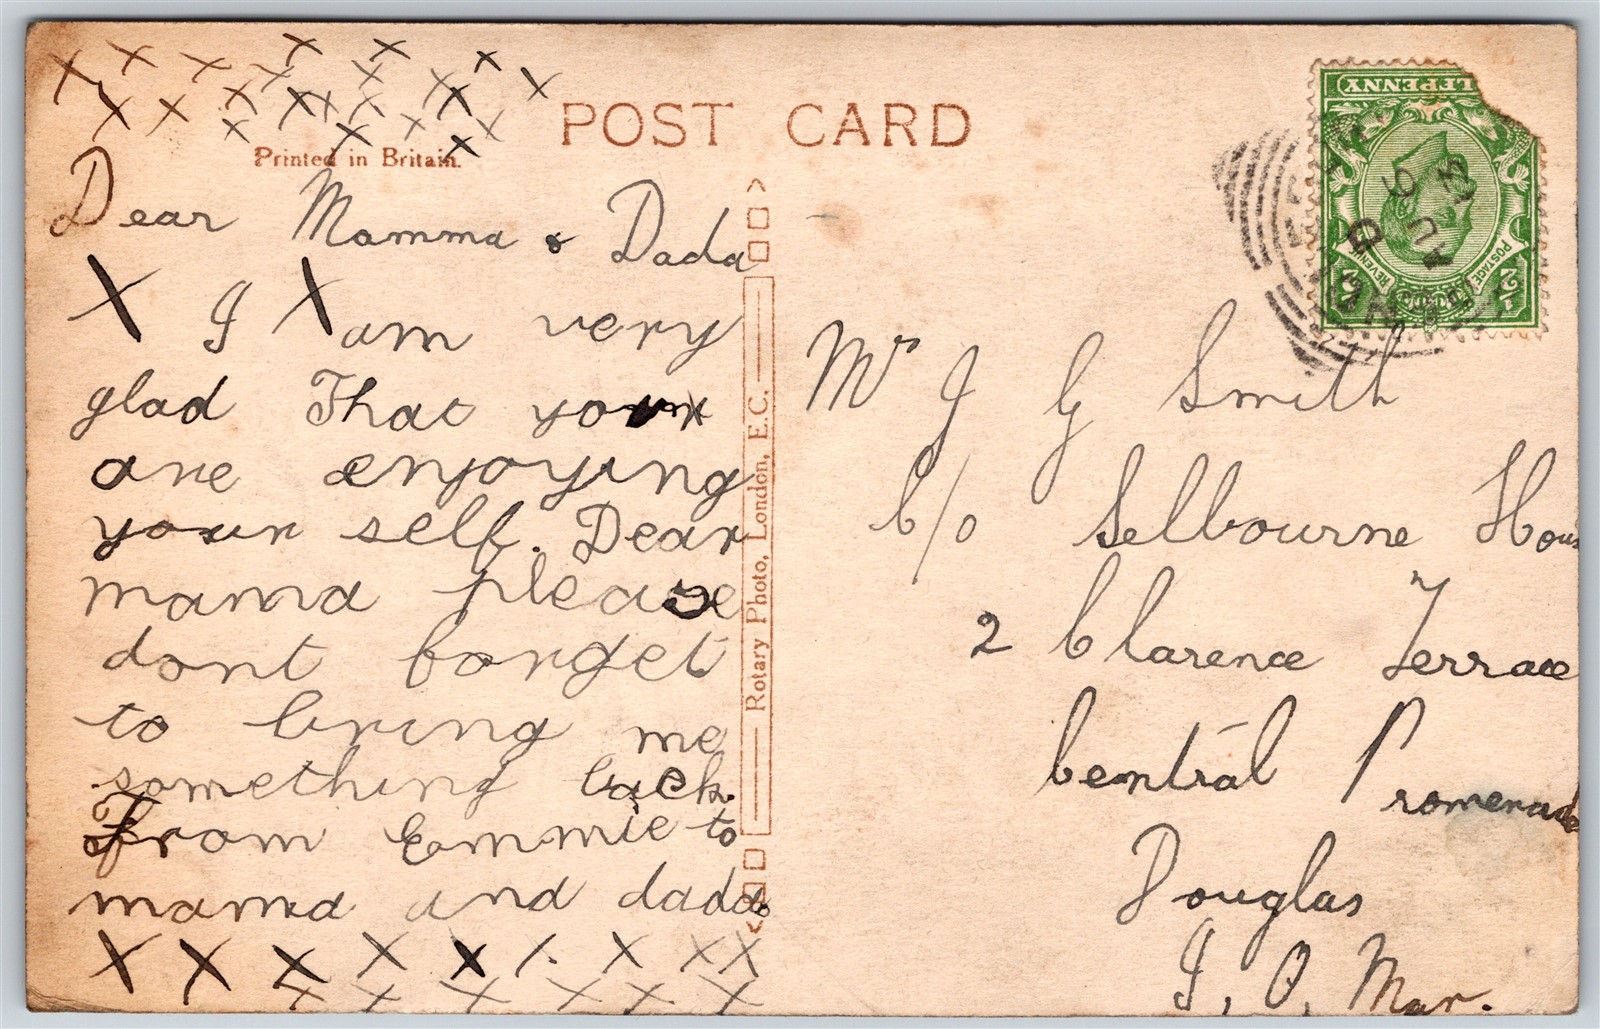 POST CARD
Printed in Britain.
Dear Mamma & Dada
X I X am very
glad That your x
are enjoying
your self. Dear
mama please
dont forget
to bring me
something back.
From Emmie to
mama and dada.
X X X X X X. X X X
X X X X X X
Rotary Photo, London, E.C.
Mr J G Smith
C/o Selbourne Hous
2 Clarence Terrace
Central Promenade
Douglas
I. O. Mar.
LFPENNY
POSTAGE
REVENUE
½
AU 6
13